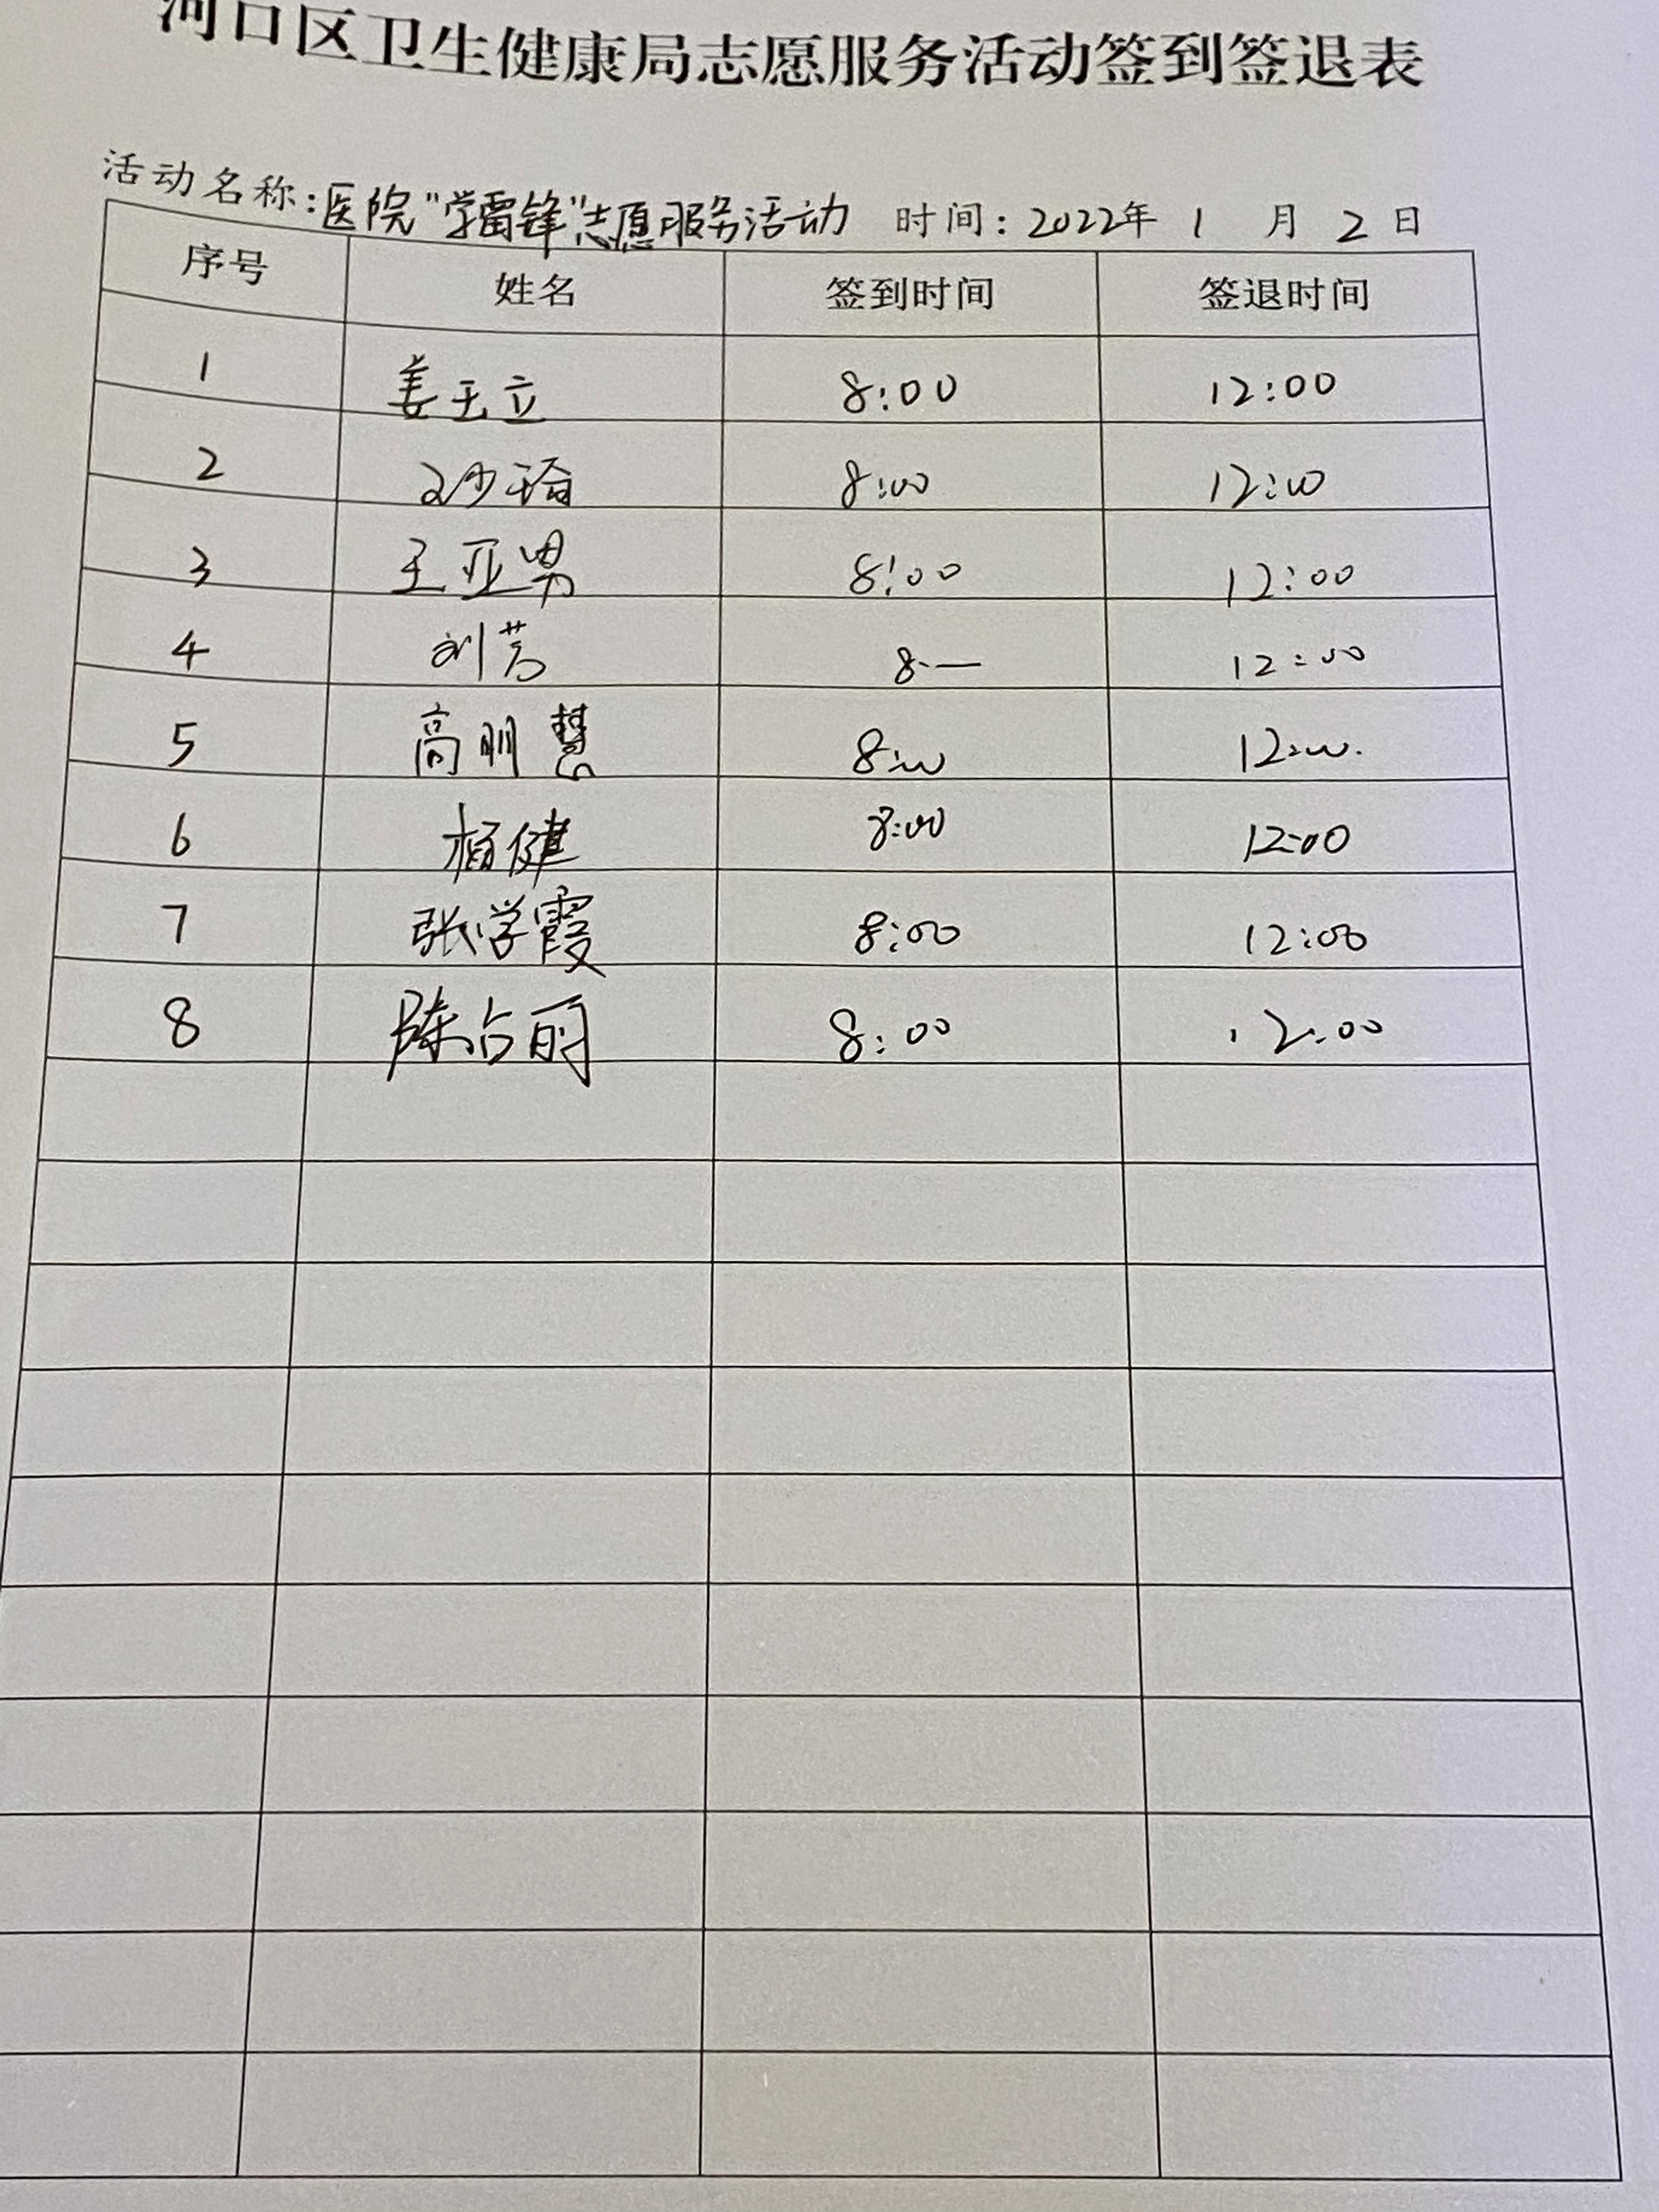 河口区卫生健康局志愿服务活动签到签退表
活动名称:医院“学雷锋”志愿服务活动 时间:2022年 1 月 2 日
序号 姓名 签到时间 签退时间
1 姜玉立 8:00 12:00
2 8:00 12:00
3 王亚男 8:00 12:00
4 刘芳 8:— 12:00
5 高明慧 8:00 12:00.
6 杨健 8:00 12:00
7 张学霞 8:00 12:00
8 陈占丽 8:00 12:00